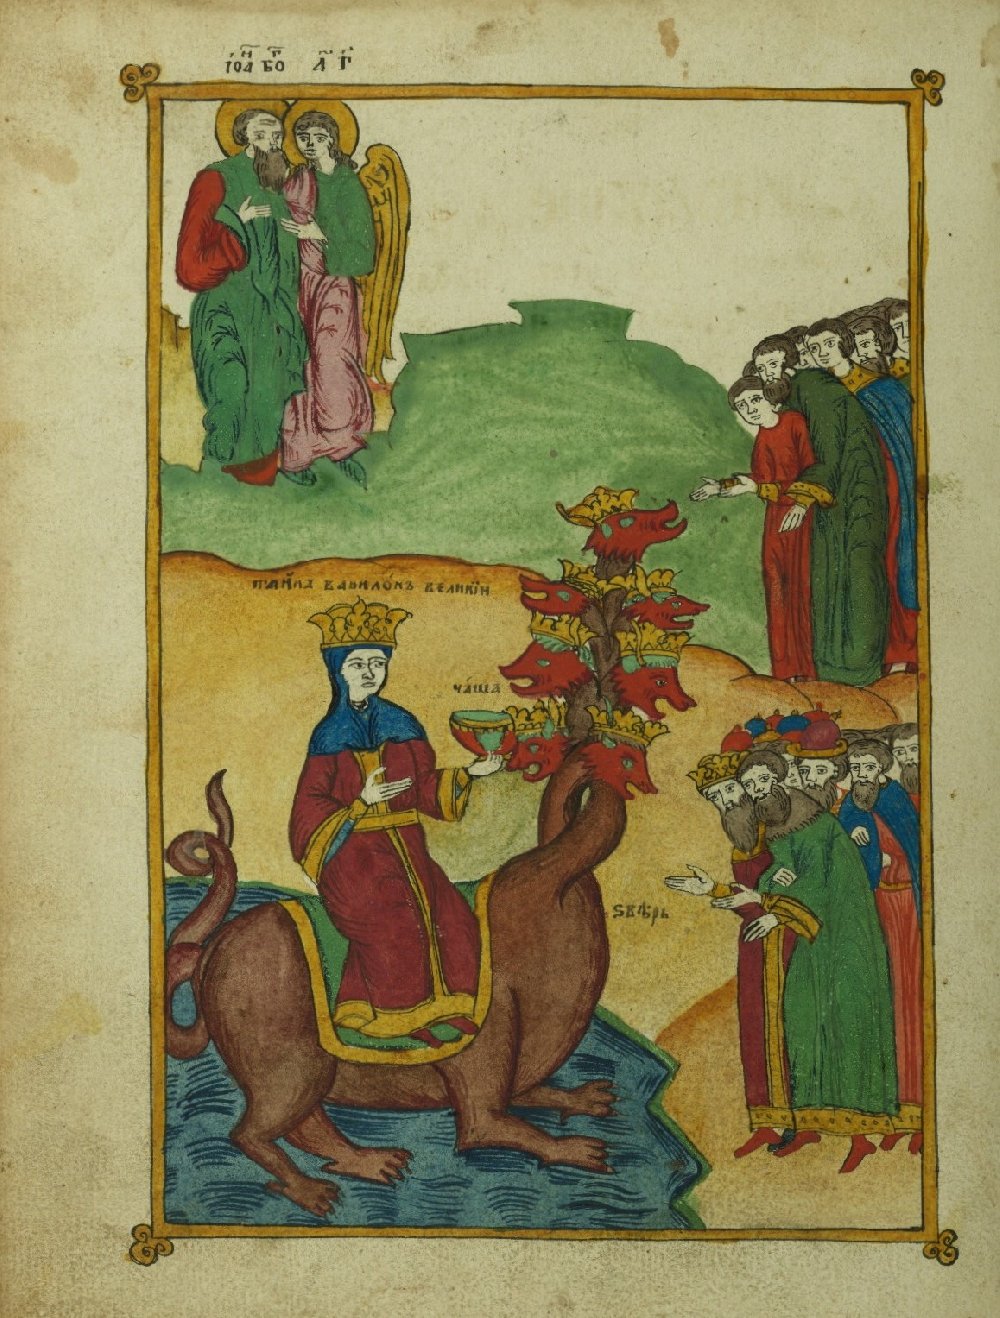 ІОАⷩ҇ БОⷢ҇ А҃ Г҃
ВАВИЛО́НЪ ВЕЛИКІ́Й
ЧА́ША
Ѕвѣрь